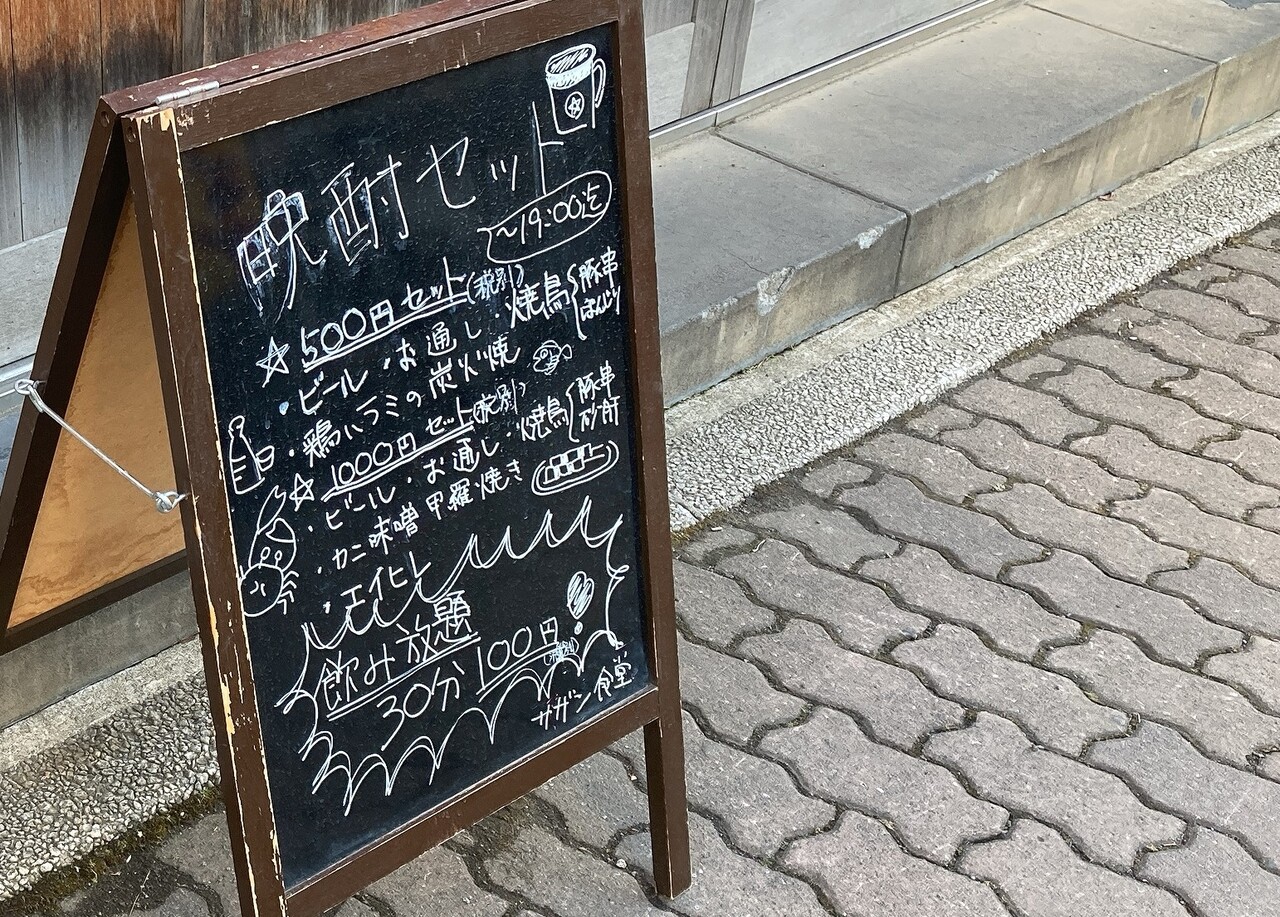 晩酌セット
~19:00迄
☆500円セット(税別)
・ビール・お通し・焼鳥{豚串 ぼんじり
・鶏ハラミの炭火焼
☆1000円セット(税別)
・ビール・お通し・焼鳥{豚串 砂肝
・カニ味噌甲羅焼き
・エイヒレ
飲み放題
30分100円(税別)
サザン食堂